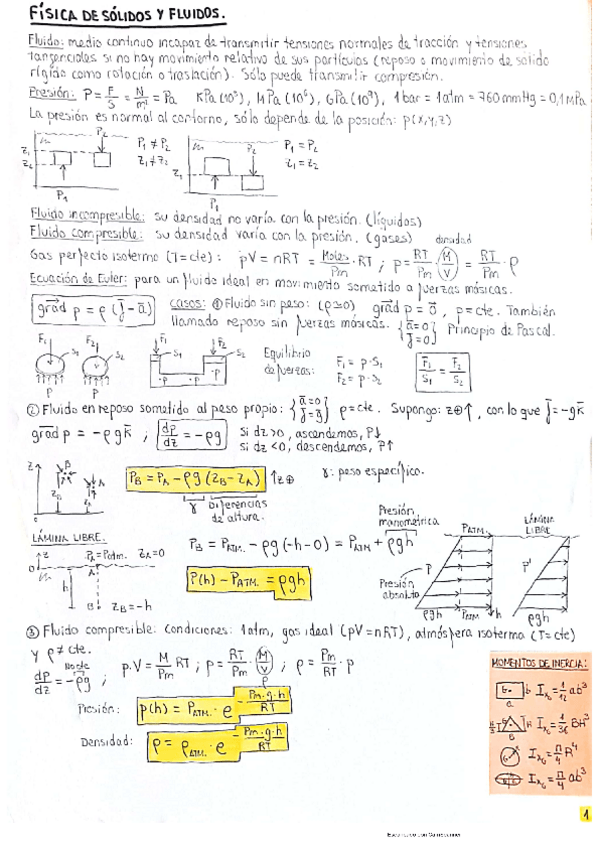 FÍSICA DE SÓLIDOS Y FLUIDOS.
Fluido: medio continuo incapaz de transmitir tensiones normales de tracción y tensiones
tangenciales si no hay movimiento relativo de sus partículas (reposo o movimiento de sólido
rígido como rotación o traslación). Sólo puede transmitir compresión.
Presión: P = F/S = N/m² = Pa KPa (10³), MPa (10⁶), GPa (10⁹), 1 bar = 1 atm = 760 mmHg = 0,1 MPa
La presión es normal al contorno, sólo depende de la posición: p(x,y,z)
P₂ P₁ ≠ P₂ P₂ P₁ = P₂
Z₁ Z₁ ≠ Z₂ Z₁ Z₁ = Z₂
Z₂
P₁ P₁
Fluido incompresible: su densidad no varía con la presión. (líquidos)
Fluido compresible: su densidad varía con la presión. (gases) densidad
Gas perfecto isotermo (T=cte): pV = nRT = Moles/Pm · RT ; p = RT/Pm (M/V) = RT/Pm · ρ
Ecuación de Euler: para un fluido ideal en movimiento sometido a fuerzas másicas.
grad p = ρ (f - a) casos: ① Fluido sin peso: (ρ≃0) grad p = 0, p = cte. También
llamado reposo sin fuerzas másicas. {a=0 f=0} Principio de Pascal.
F₁ S₁ F₂ S₂ F₁ S₁ F₂ S₂ Equilibrio de fuerzas: F₁ = p·S₁ F₂ = p·S₂ F₁/S₁ = F₂/S₂
P P ·P ·P
② Fluido en reposo sometido al peso propio: {a=0 f=g} ρ=cte. Supongo: z⊕↑, con lo que f = -gk
grad p = -ρgk ; dp/dz = -ρg Si dz>0, ascendemos, P↓
si dz<0, descendemos, P↑
P_B = P_A - ρg (Z_B - Z_A) ↑z⊕ γ: peso específico.
γ Diferencias
de altura.
LÁMINA LIBRE.
z P_A = Patm. Z_A = 0
h
B Z_B = -h
P_B = P_ATM. - ρg(-h-0) = P_ATM + ρgh
P(h) - P_ATM. = ρgh
Presión manométrica P_ATM. LÁMINA LIBRE
P P'
Presión absoluta
ρgh P_ATM h ρgh
③ Fluido compresible: Condiciones: 1 atm, gas ideal (pV=nRT), atmósfera isoterma (T=cte)
y ρ≠cte.
dp/dz = -ρg ; p·V = M/Pm RT ; p = RT/Pm (M/V) ; ρ = Pm/RT · p
Presión: p(h) = P_ATM. · e^(-Pm·g·h/RT)
Densidad: ρ = ρ_ATM. · e^(-Pm·g·h/RT)
MOMENTOS DE INERCIA:
G b I_xG = 1/12 ab³
a
h/3 h I_xG = 1/36 BH³
B
I_xG = π/4 R⁴
I_xG = π/4 ab³
1